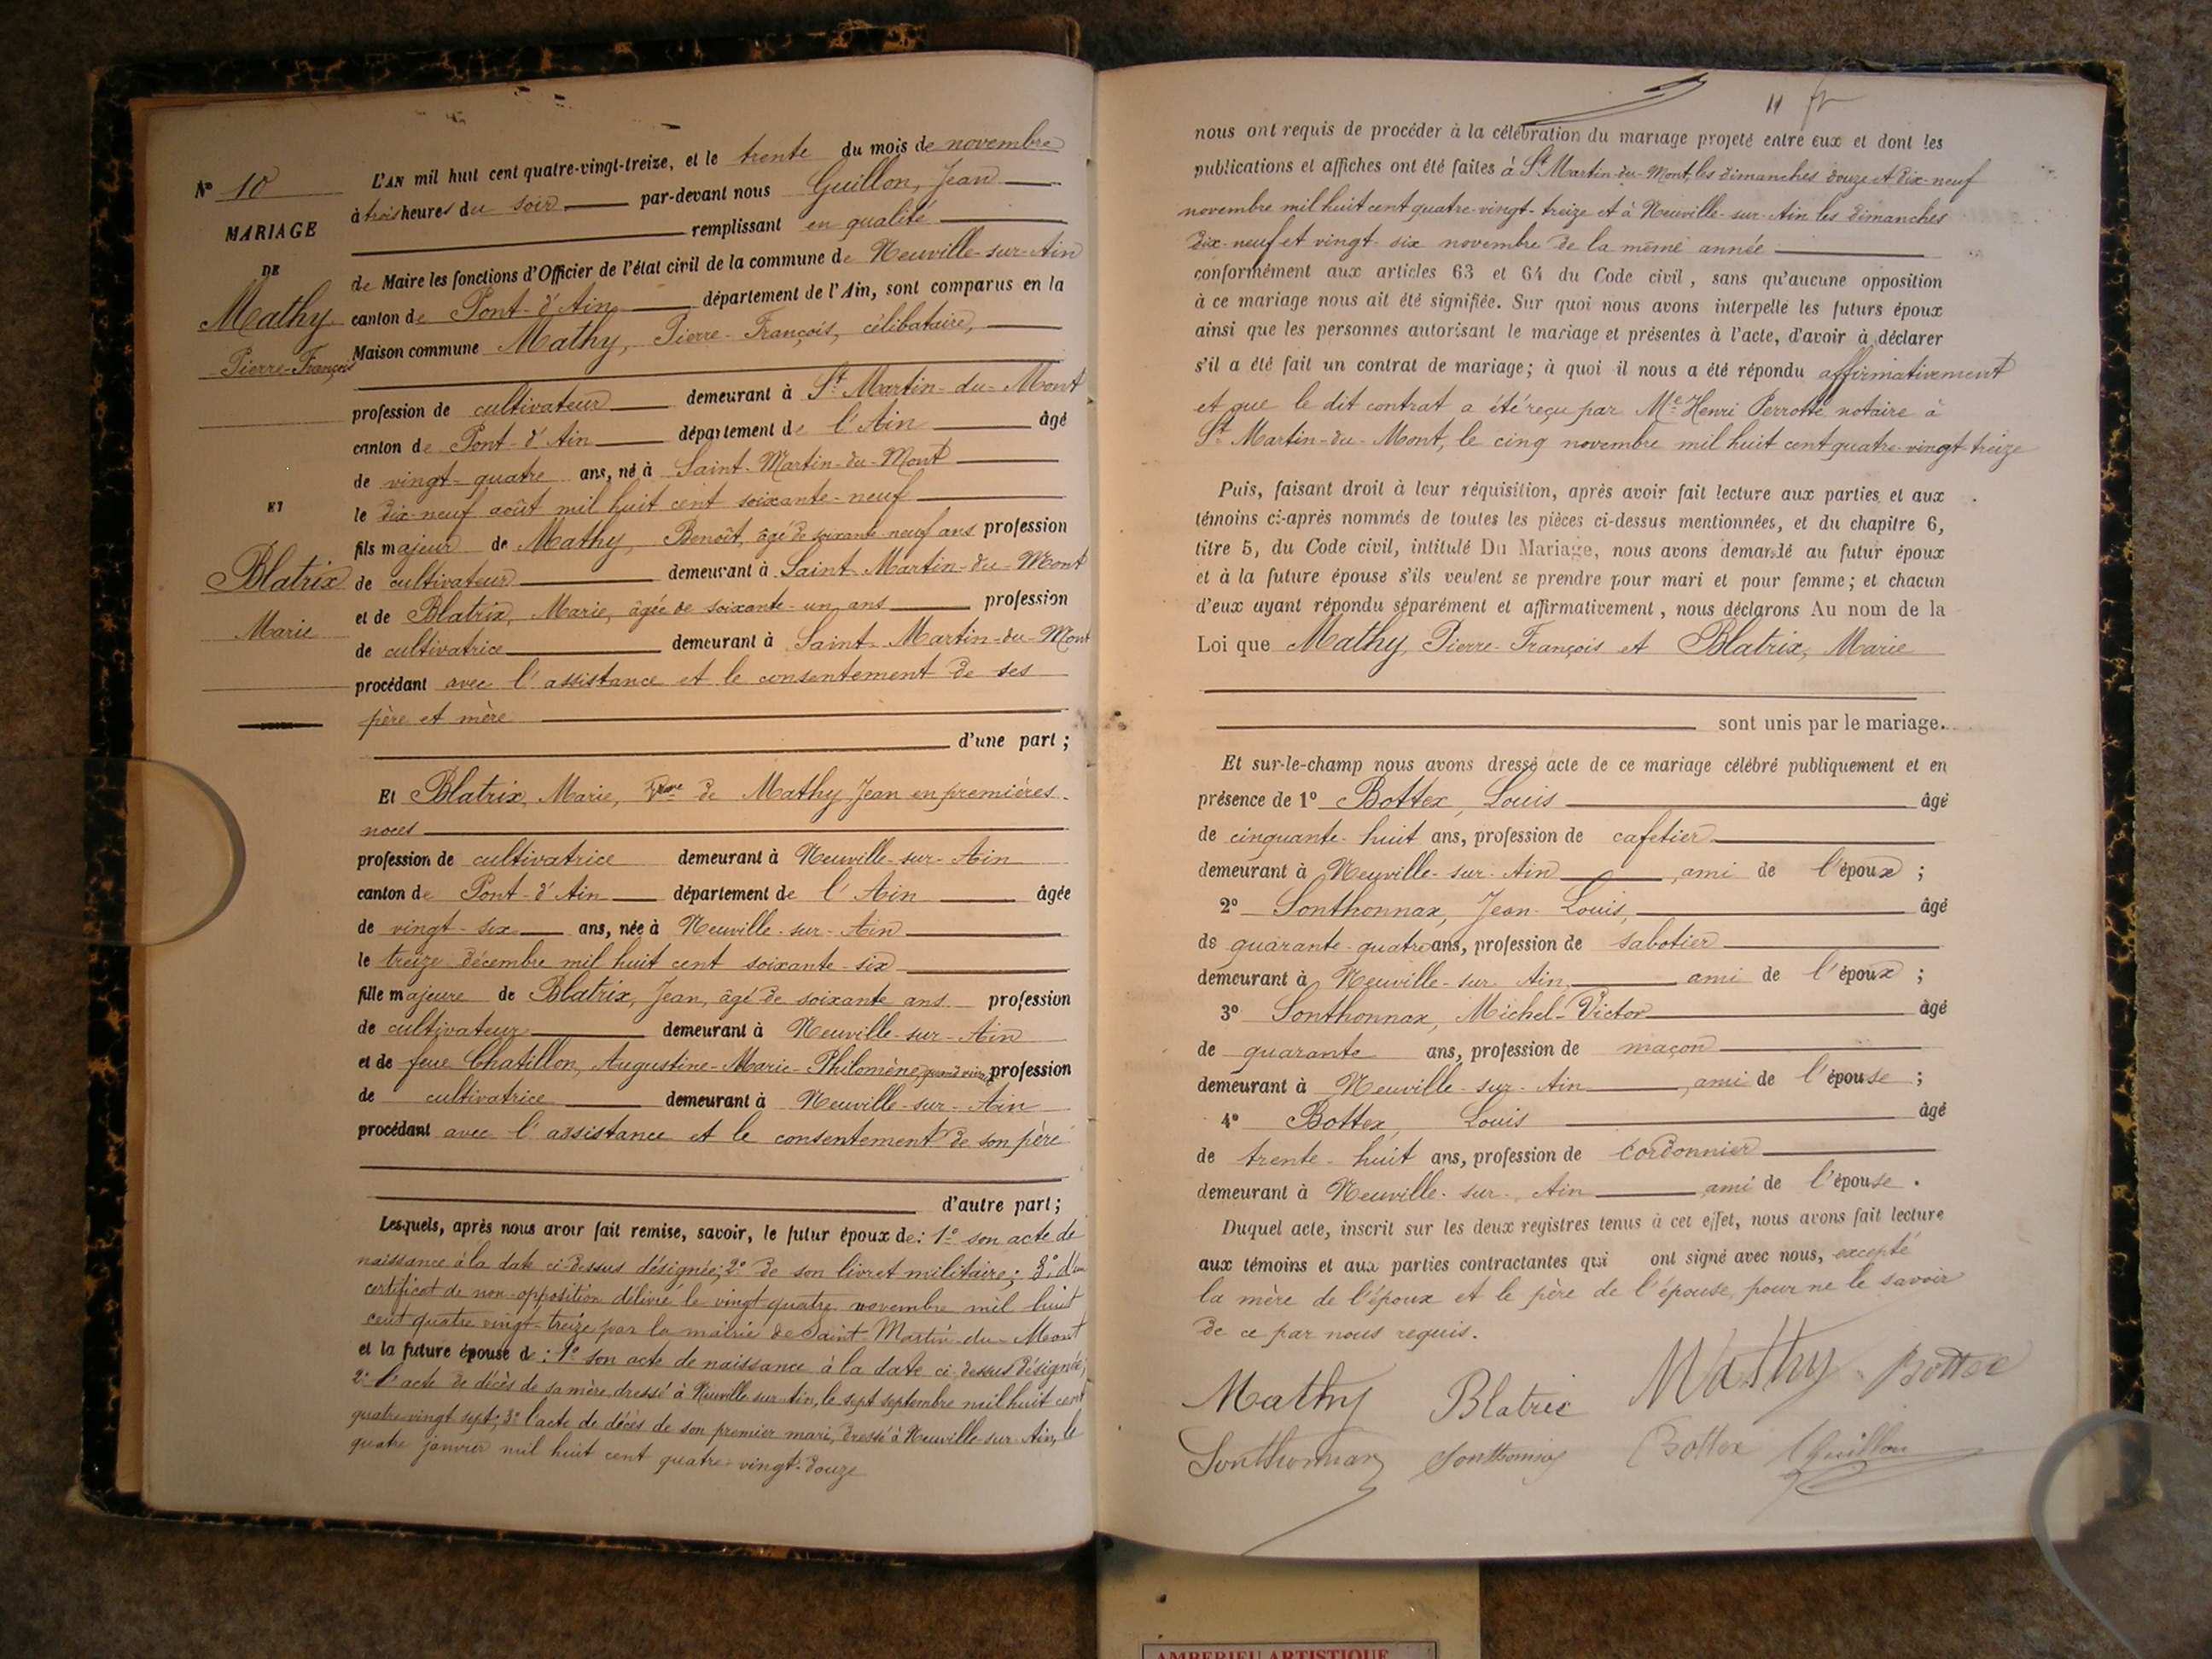 N° 10
MARIAGE
DE
Mathy
Pierre-François
ET
Blatrix
Marie
L'AN mil huit cent quatre-vingt-treize, et le trente du mois de novembre
à trois heures du soir par-devant nous Guillon, Jean
remplissant en qualité
de Maire les fonctions d'Officier de l'état civil de la commune de Neuville-sur-Ain
canton de Pont-d'Ain département de l'Ain, sont comparus en la
Maison commune Mathy, Pierre-François, célibataire,
profession de cultivateur demeurant à St Martin-du-Mont
canton de Pont-d'Ain département de l'Ain âgé
de vingt-quatre ans, né à Saint-Martin-du-Mont
le dix-neuf août mil huit cent soixante-neuf
fils majeur de Mathy, Benoît, âgé de soixante neuf ans profession
de cultivateur demeurant à Saint-Martin-du-Mont
et de Blatrix, Marie, âgée de soixante-un ans profession
de cultivatrice demeurant à Saint-Martin-du-Mont
procédant avec l'assistance et le consentement de ses
père et mère
d'une part;
Et Blatrix, Marie, Vve de Mathy Jean en premières
noces
profession de cultivatrice demeurant à Neuville-sur-Ain
canton de Pont-d'Ain département de l'Ain âgée
de vingt-six ans, née à Neuville-sur-Ain
le treize décembre mil huit cent soixante-six
fille majeure de Blatrix, Jean, âgé de soixante ans profession
de cultivateur demeurant à Neuville-sur-Ain
et de feue Chatillon, Augustine-Marie-Philomène quand vivait profession
de cultivatrice demeurant à Neuville-sur-Ain
procédant avec l'assistance et le consentement de son père
d'autre part;
Lesquels, après nous avoir fait remise, savoir, le futur époux de: 1° son acte de
naissance à la date ci-dessus désignée; 2° de son livret militaire; 3° d'un
certificat de non-opposition délivré le vingt quatre novembre mil huit
cent quatre vingt-treize par la mairie de Saint-Martin-du-Mont
et la future épouse de: 1° son acte de naissance à la date ci-dessus désignée;
2° l'acte de décès de sa mère dressé à Neuville sur Ain, le sept septembre mil huit cent
quatre-vingt sept; 3° l'acte de décès de son premier mari, dressé à Neuville-sur-Ain, le
quatre janvier mil huit cent quatre-vingt-douze
11
nous ont requis de procéder à la célébration du mariage projeté entre eux et dont les
publications et affiches ont été faites à St Martin-du-Mont, les dimanches douze et dix-neuf
novembre mil huit cent quatre-vingt-treize et à Neuville-sur-Ain les dimanches
dix-neuf et vingt-six novembre de la même année
conformément aux articles 63 et 64 du Code civil, sans qu'aucune opposition
à ce mariage nous ait été signifiée. Sur quoi nous avons interpellé les futurs époux
ainsi que les personnes autorisant le mariage et présentes à l'acte, d'avoir à déclarer
s'il a été fait un contrat de mariage; à quoi il nous a été répondu affirmativement
et que le dit contrat a été reçu par Me Henri Perrotte notaire à
St Martin-du-Mont, le cinq novembre mil huit cent quatre-vingt-treize
Puis, faisant droit à leur réquisition, après avoir fait lecture aux parties et aux
témoins ci-après nommés de toutes les pièces ci-dessus mentionnées, et du chapitre 6,
titre 5, du Code civil, intitulé Du Mariage, nous avons demandé au futur époux
et à la future épouse s'ils veulent se prendre pour mari et pour femme; et chacun
d'eux ayant répondu séparément et affirmativement, nous déclarons Au nom de la
Loi que Mathy, Pierre-François et Blatrix, Marie
sont unis par le mariage.
Et sur-le-champ nous avons dressé acte de ce mariage célébré publiquement et en
présence de 1° Bottex, Louis âgé
de cinquante-huit ans, profession de cafetier
demeurant à Neuville-sur-Ain, ami de l'époux;
2° Sonthonnax, Jean-Louis, âgé
de quarante-quatre ans, profession de sabotier
demeurant à Neuville-sur-Ain ami de l'époux;
3° Sonthonnax, Michel-Victor âgé
de quarante ans, profession de maçon
demeurant à Neuville-sur-Ain, ami de l'épouse;
4° Bottex, Louis âgé
de trente-huit ans, profession de cordonnier
demeurant à Neuville-sur-Ain ami de l'épouse.
Duquel acte, inscrit sur les deux registres tenus à cet effet, nous avons fait lecture
aux témoins et aux parties contractantes qui ont signé avec nous, excepté
la mère de l'époux et le père de l'épouse, pour ne le savoir
de ce par nous requis.
Mathy Blatrix Mathy Bottex
Sonthonnax Sonthonnax Bottex Guillon
AMBERIEU ARTISTIQUE